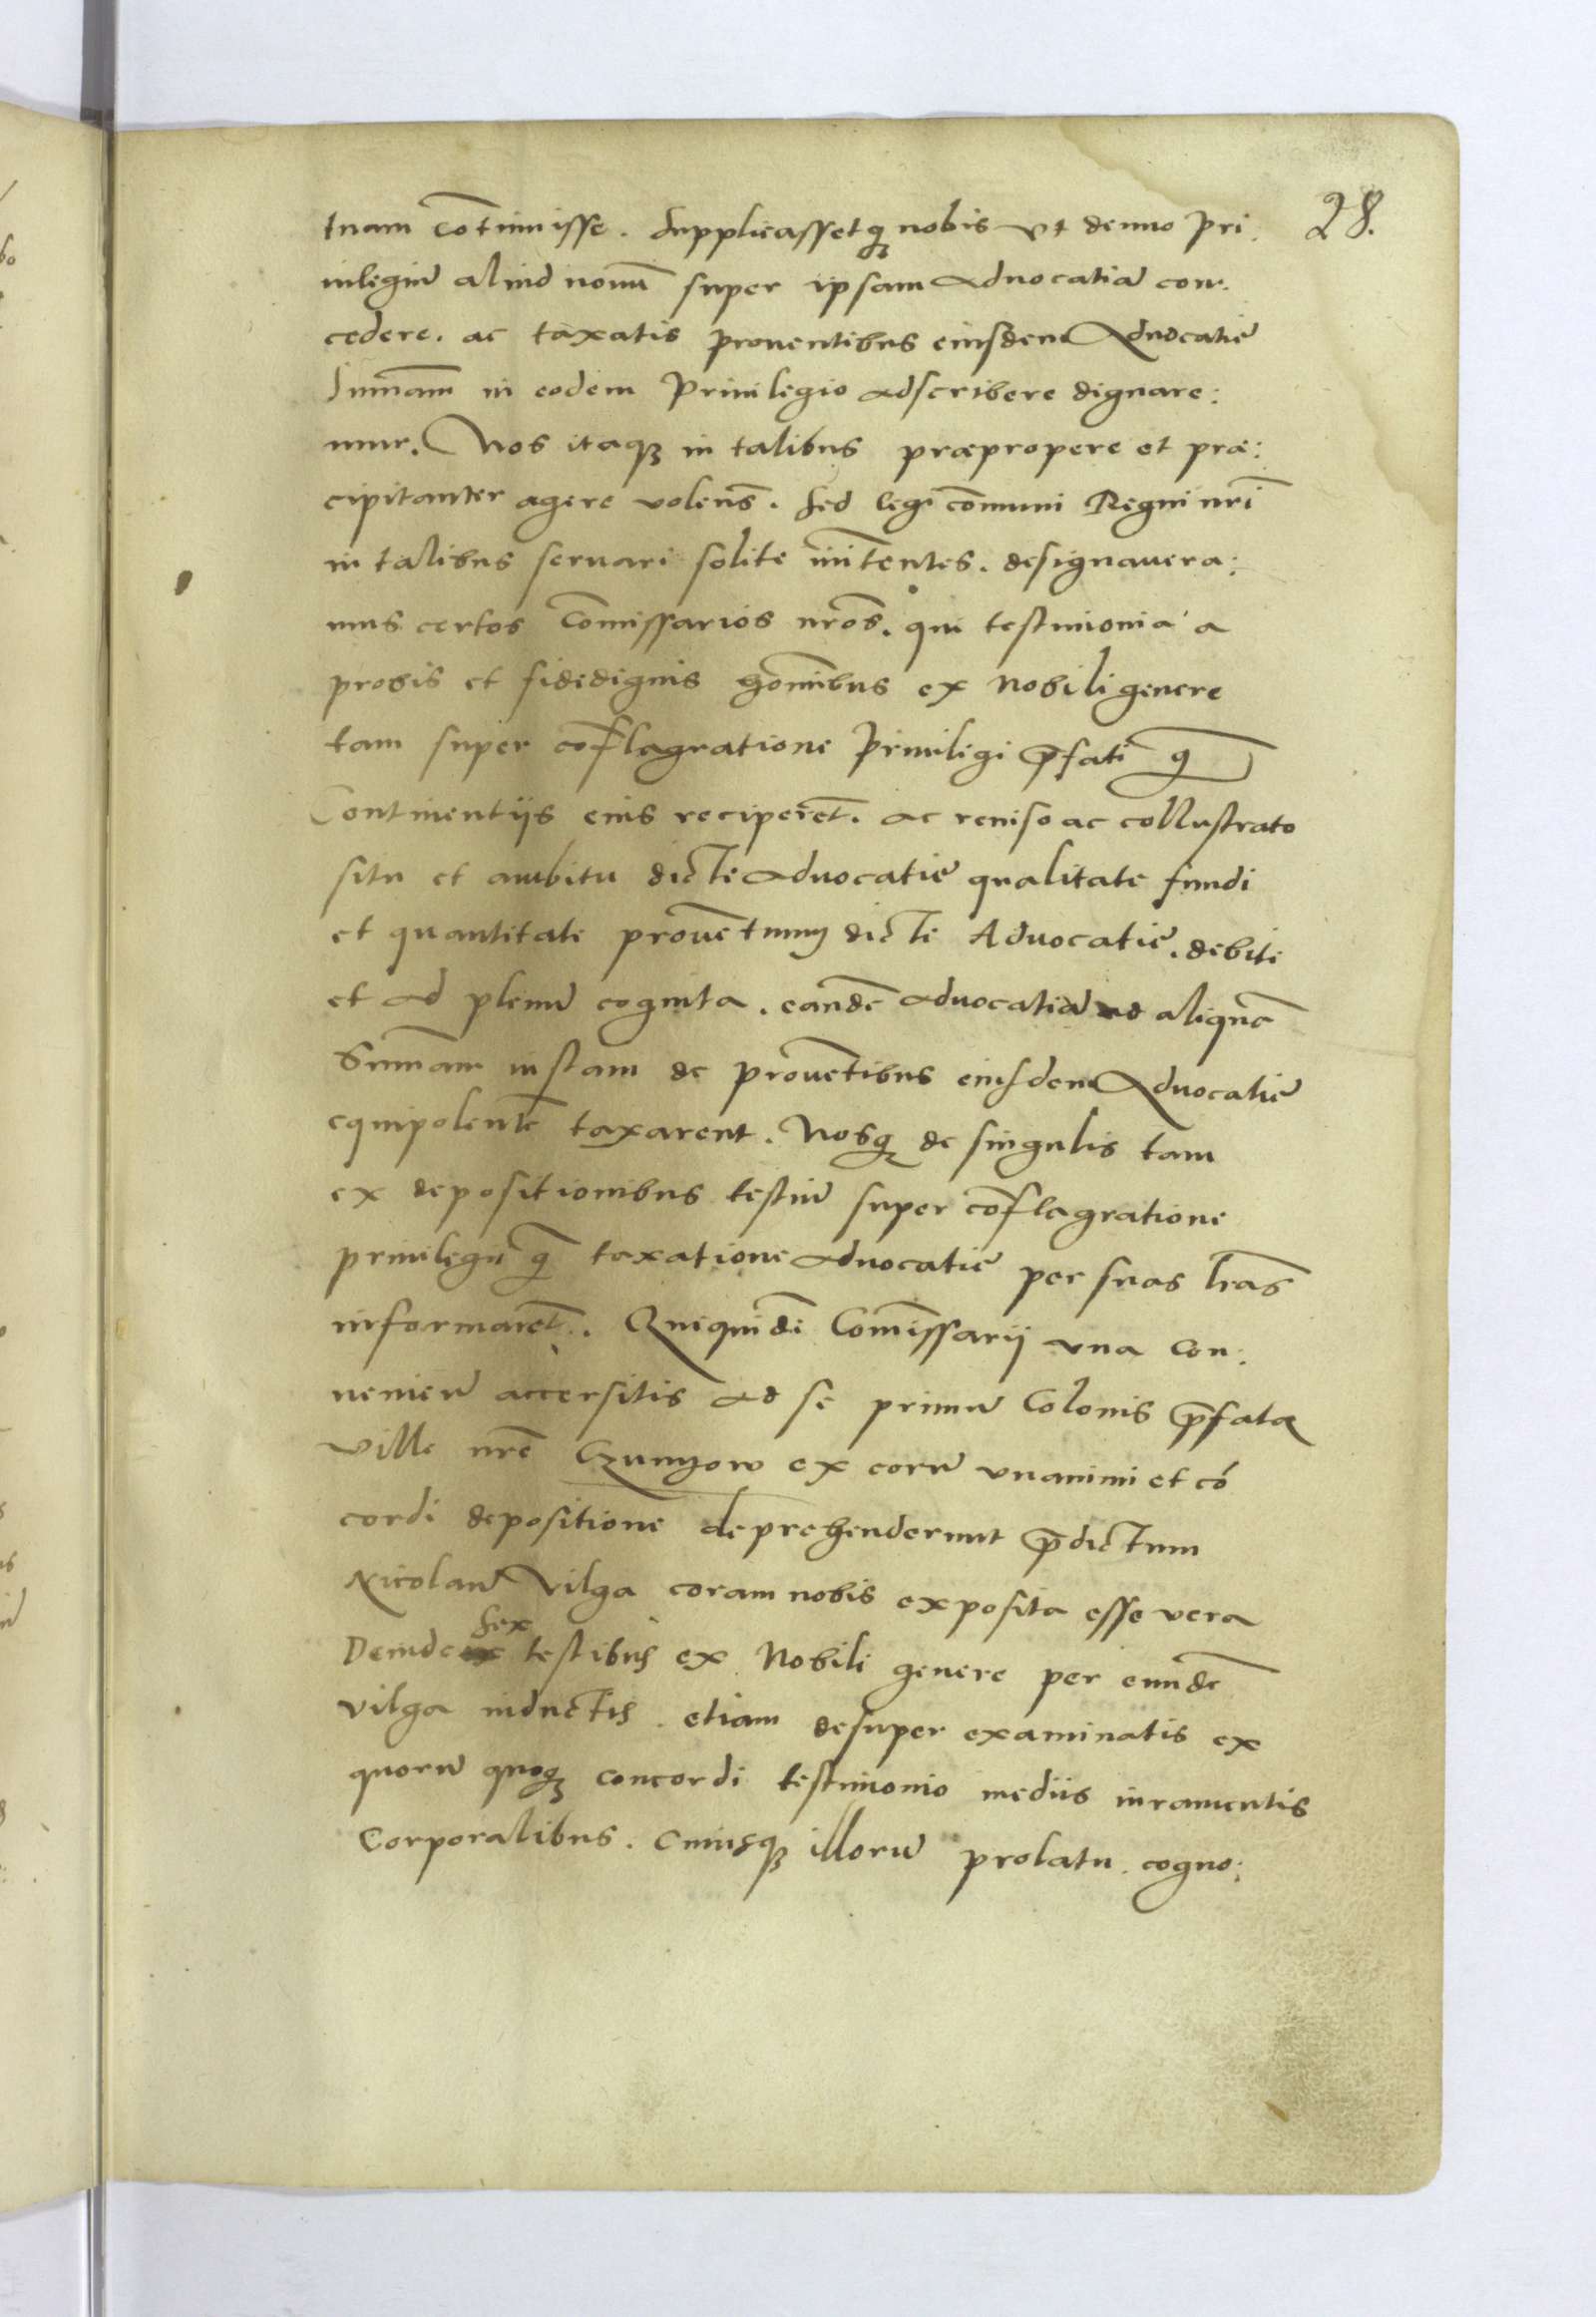 28.
tuam cōtinuisse. Supplicassetq̨ nobis vt denuo Pri:
uilegiū aliud nouū super ipsam aduocatiā con:
cedere. ac taxatis prouentibus eiusdem Aduocatiē
Sum̄am in eodem Priuilegio adscribere dignare:
mur. Nos itaqȝ in talibus præpropere et præ:
cipitanter agere volens̄. Sed legi cōmuni Regni nrī
in talibus seruari solite innitentes. designauera:
mus certos Cōmissarios nrōs. qui testimonia a
probis et fidedignis hōminibus ex Nobili genere
tam super cōflagratione Priuilegi p̄fati q̄
Continentijs eius reciperēt. ac reuiso ac collustrato
situ et ambitu dicte aduocatiē qualitate fundi
et quantitate prouētuum dicte Aduocatiē. debite
et ad plenū cognita. eandē aduocatiā ad aliquā
Summam iustam de prouētibus eiusdem Aduocatiē
equipolentē taxarent. Nosqȝ de singulis tam
ex depositionibus testiū super cōflagratione
priuilegii q̄ taxatione aduocatiē per suas lr̄as
informarēt. Quiquidē Com̄issarij vna Con:
uenieñ accersitis ad se primū Colonis p̄fata
Ville nr̄e ex eorū vnanimi et cō
cordi depositione deprehenderunt p̄dictum
Nicolaū Vilga coram nobis exposita esse vera
Deinde sex testibus ex Nobili genere per eundē
Vilga inductis. etiam desuper examinatis ex
quorū quoqȝ concordi testimonio mediis iuramentis
Corporalibus. Cuiusqȝ illorū prolatu. cogno: